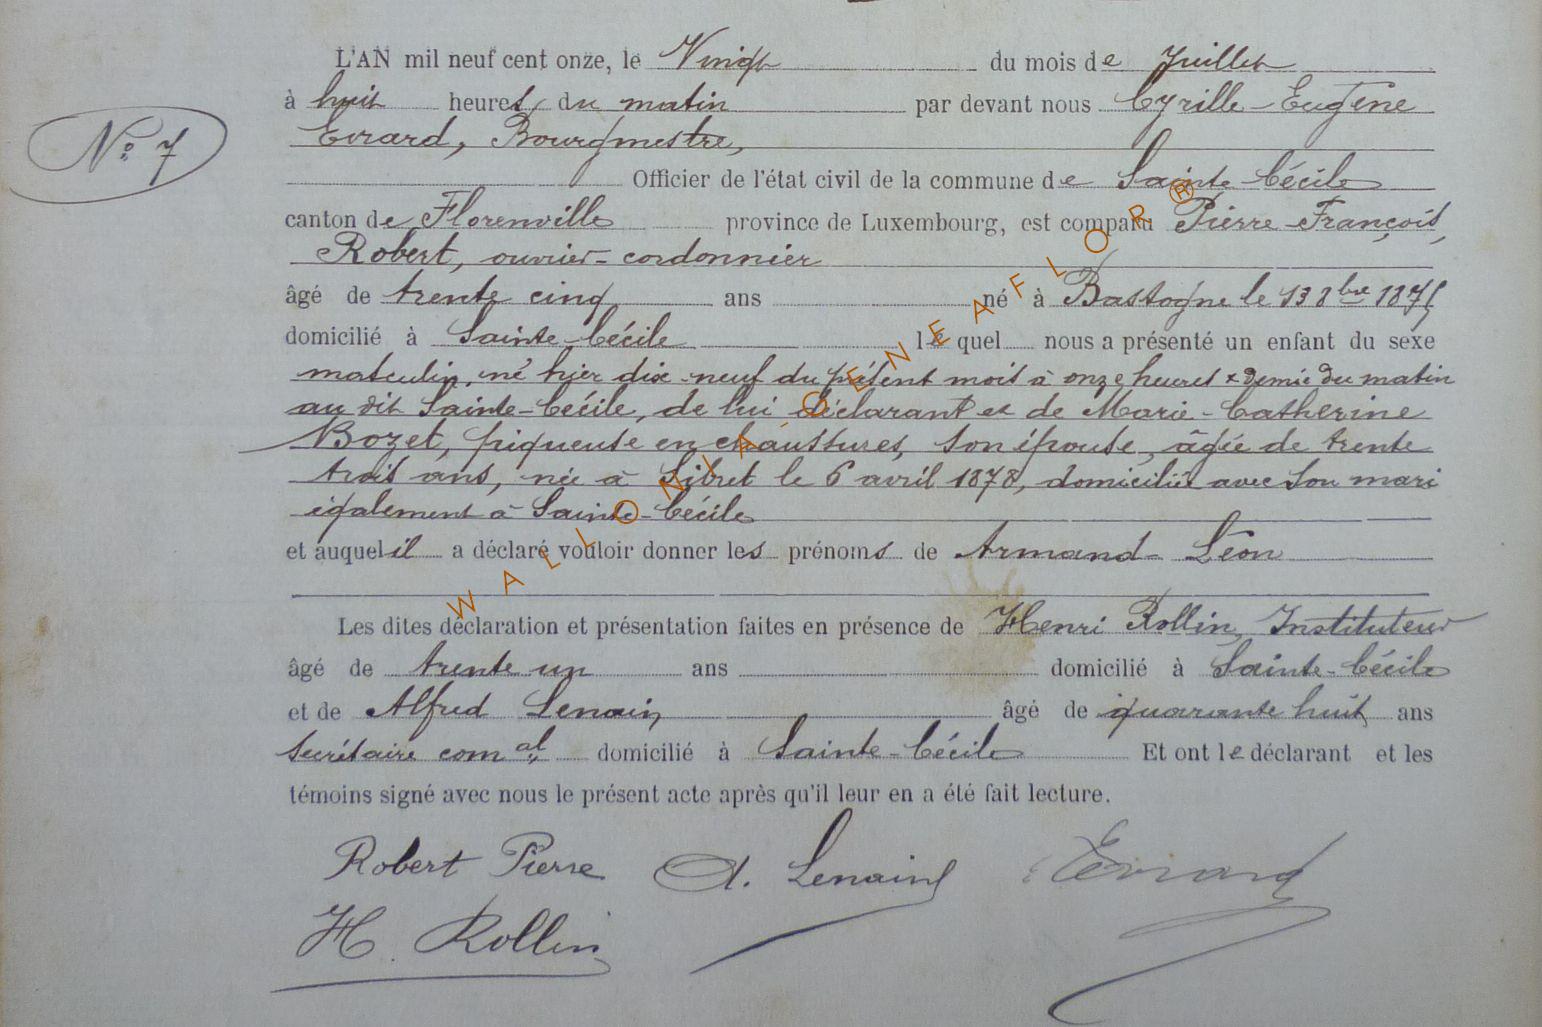 L'AN mil neuf cent onze, le Vingt du mois de Juillet
à huit heures, du matin par devant nous Cyrille-Eugène
Evrard, Bourgmestre,
N° 7
Officier de l'état civil de la commune de Sainte-Cécile
canton de Florenville province de Luxembourg, est comparu Pierre-François,
Robert, ouvrier-cordonnier
âgé de trente cinq ans né à Bastogne le 13 8bre 1875
domicilié à Sainte-Cécile lequel nous a présenté un enfant du sexe
masculin, né hier dix-neuf du présent mois à onze heures & demie du matin
au dit Sainte-Cécile, de lui déclarant et de Marie-Catherine
Bozet, piqueuse en chaussures, son épouse, âgée de trente
trois ans, née à Sibret le 6 avril 1878, domiciliée avec son mari
également à Sainte-Cécile
et auquel il a déclaré vouloir donner les prénoms de Armand-Léon
Les dites déclaration et présentation faites en présence de Henri Rollin, Instituteur
âgé de trente un ans domicilié à Sainte-Cécile
et de Alfred Lenain âgé de quarante huit ans
secrétaire comal, domicilié à Sainte-Cécile Et ont le déclarant et les
témoins signé avec nous le présent acte après qu'il leur en a été fait lecture.
Robert Pierre A. Lenain Evrard
H. Rollin
WALLONIA-GENEAFLOR®